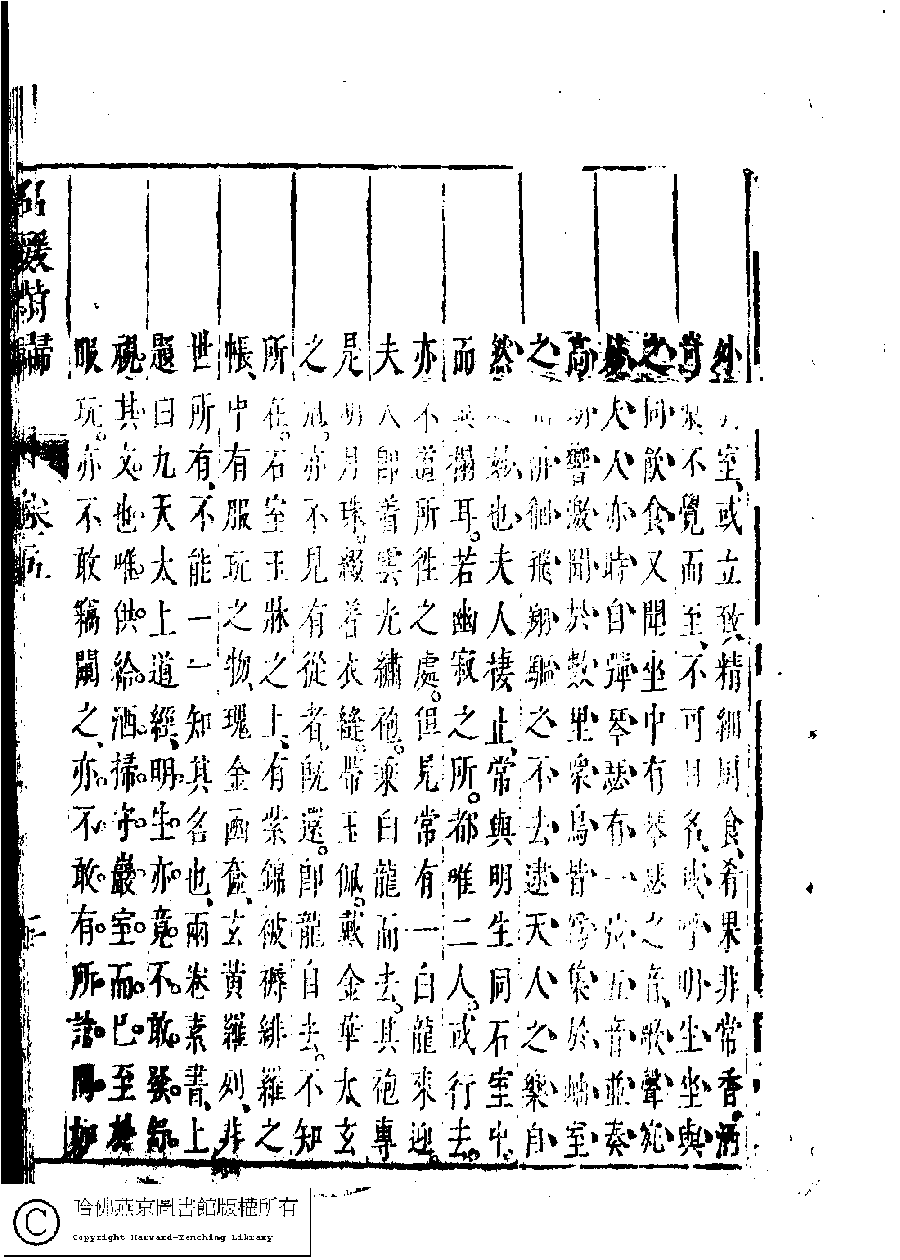 外于室或立致精細厨食肴果非常香酒
奇漿不覺而至不可目名或呼明生坐與
之同飲食又聞坐中有琴瑟之音歌聲宛
妙夫人亦時自彈琴瑟有一弦五音並奏
高朗響激聞於數里衆鳥皆爲集於岫室
之間徘徊飛翔驅之不去逮天人之樂自
然之妙也夫人棲止常與明生同石室中
而異榻耳若幽寂之所都唯二人或行去
亦不道所徃之處但見常有一白龍來迎
夫人卽着雲光繡袍乘白龍而去其袍專
是明月珠綴着衣縫帶玉佩戴金華太玄
之冠亦不見有從者旣還卽龍自去不知
所在石室玉牀之上有紫錦被褥緋羅之
帳中有服玩之物瑰金函奩玄黄羅列非
世所有不能一一知其名也兩卷素書上
題曰九天太上道經明生亦竟不敢發
視其文也唯供給洒掃守巖室而已至於
服玩亦不敢竊闚之亦不敢有所請問
名媛詩歸
卷五
哈佛燕京圖書館版權所有
Copyright Harvard-Yenching Library